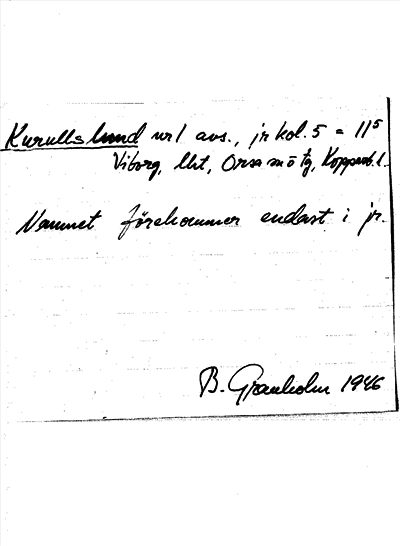 Kurullslund nr 1 avs., jr kol. 5 = 11⁵
Viborg, llht, Orsa sn o tg, Kopparb. l.
Namnet förekommer endast i jr.
B. Granholm 1946